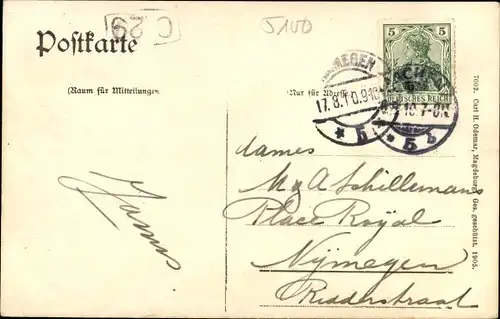 C 29
5100
Postkarte
(Raum für Mitteilungen)
(Nur für Adresse)
5 5
DEUTSCHES REICH
17.8.10.9-10
* 5
* 5 b
7022. Carl H. Odemar, Magdeburg. Ges. geschützt, 1905.
Dames
M. & A Schillemans
Place Royal
Nijmegen
Ridderstraat